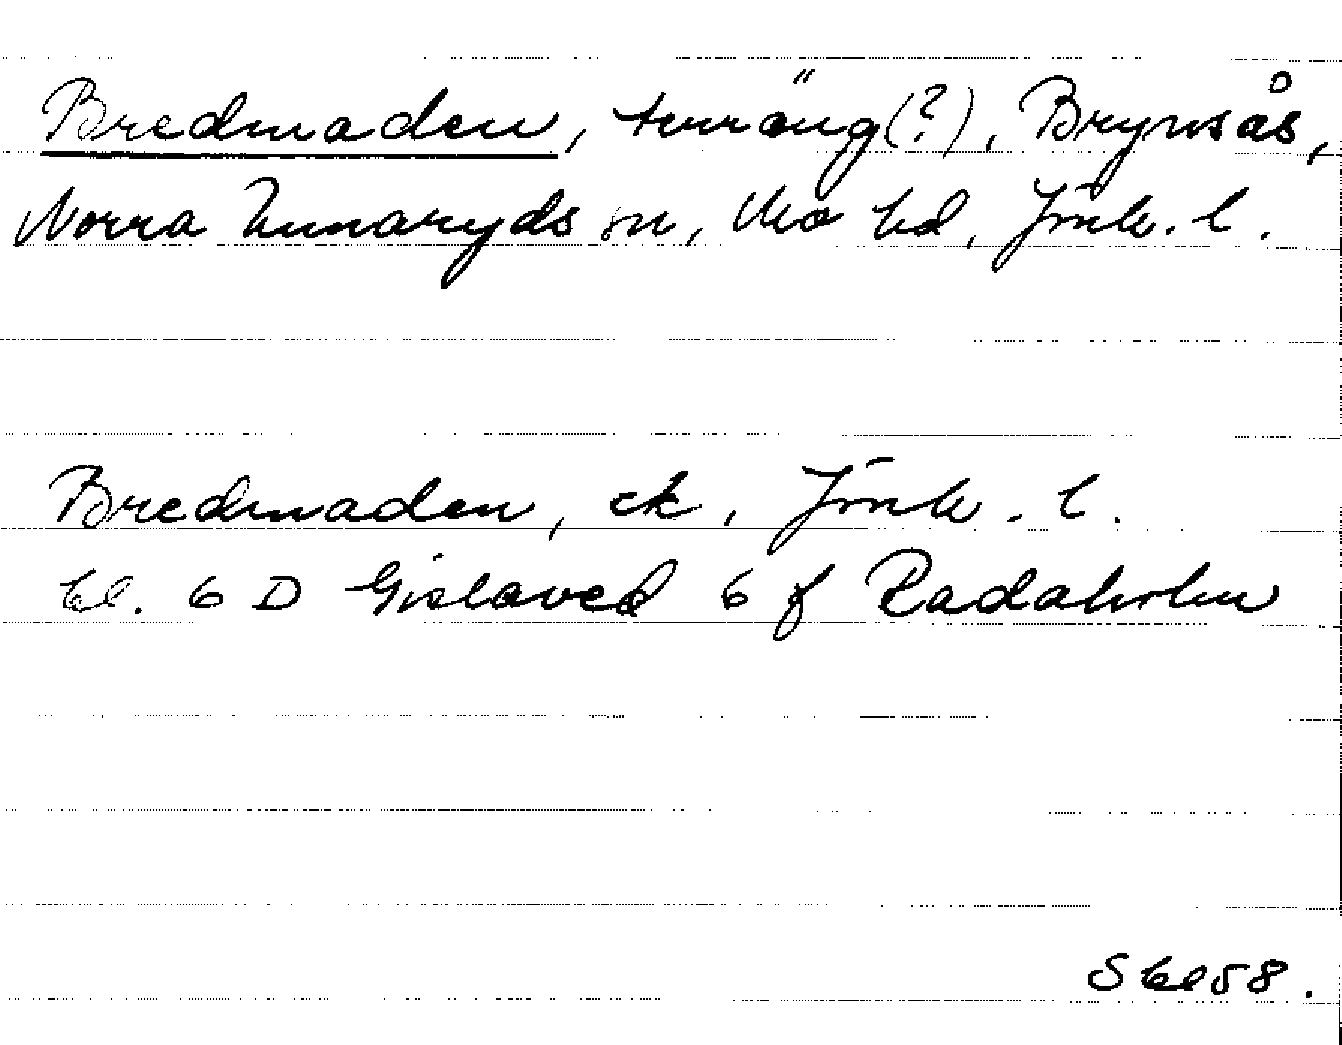 Bredmaden, terräng(?), Brynsås,
Norra Unnaryds sn, Mo hd, Jönk. l.
Bredmaden, ek, Jönk. l.
bl. 6 D Gislaved 6 f Radaholm
S bl 58.